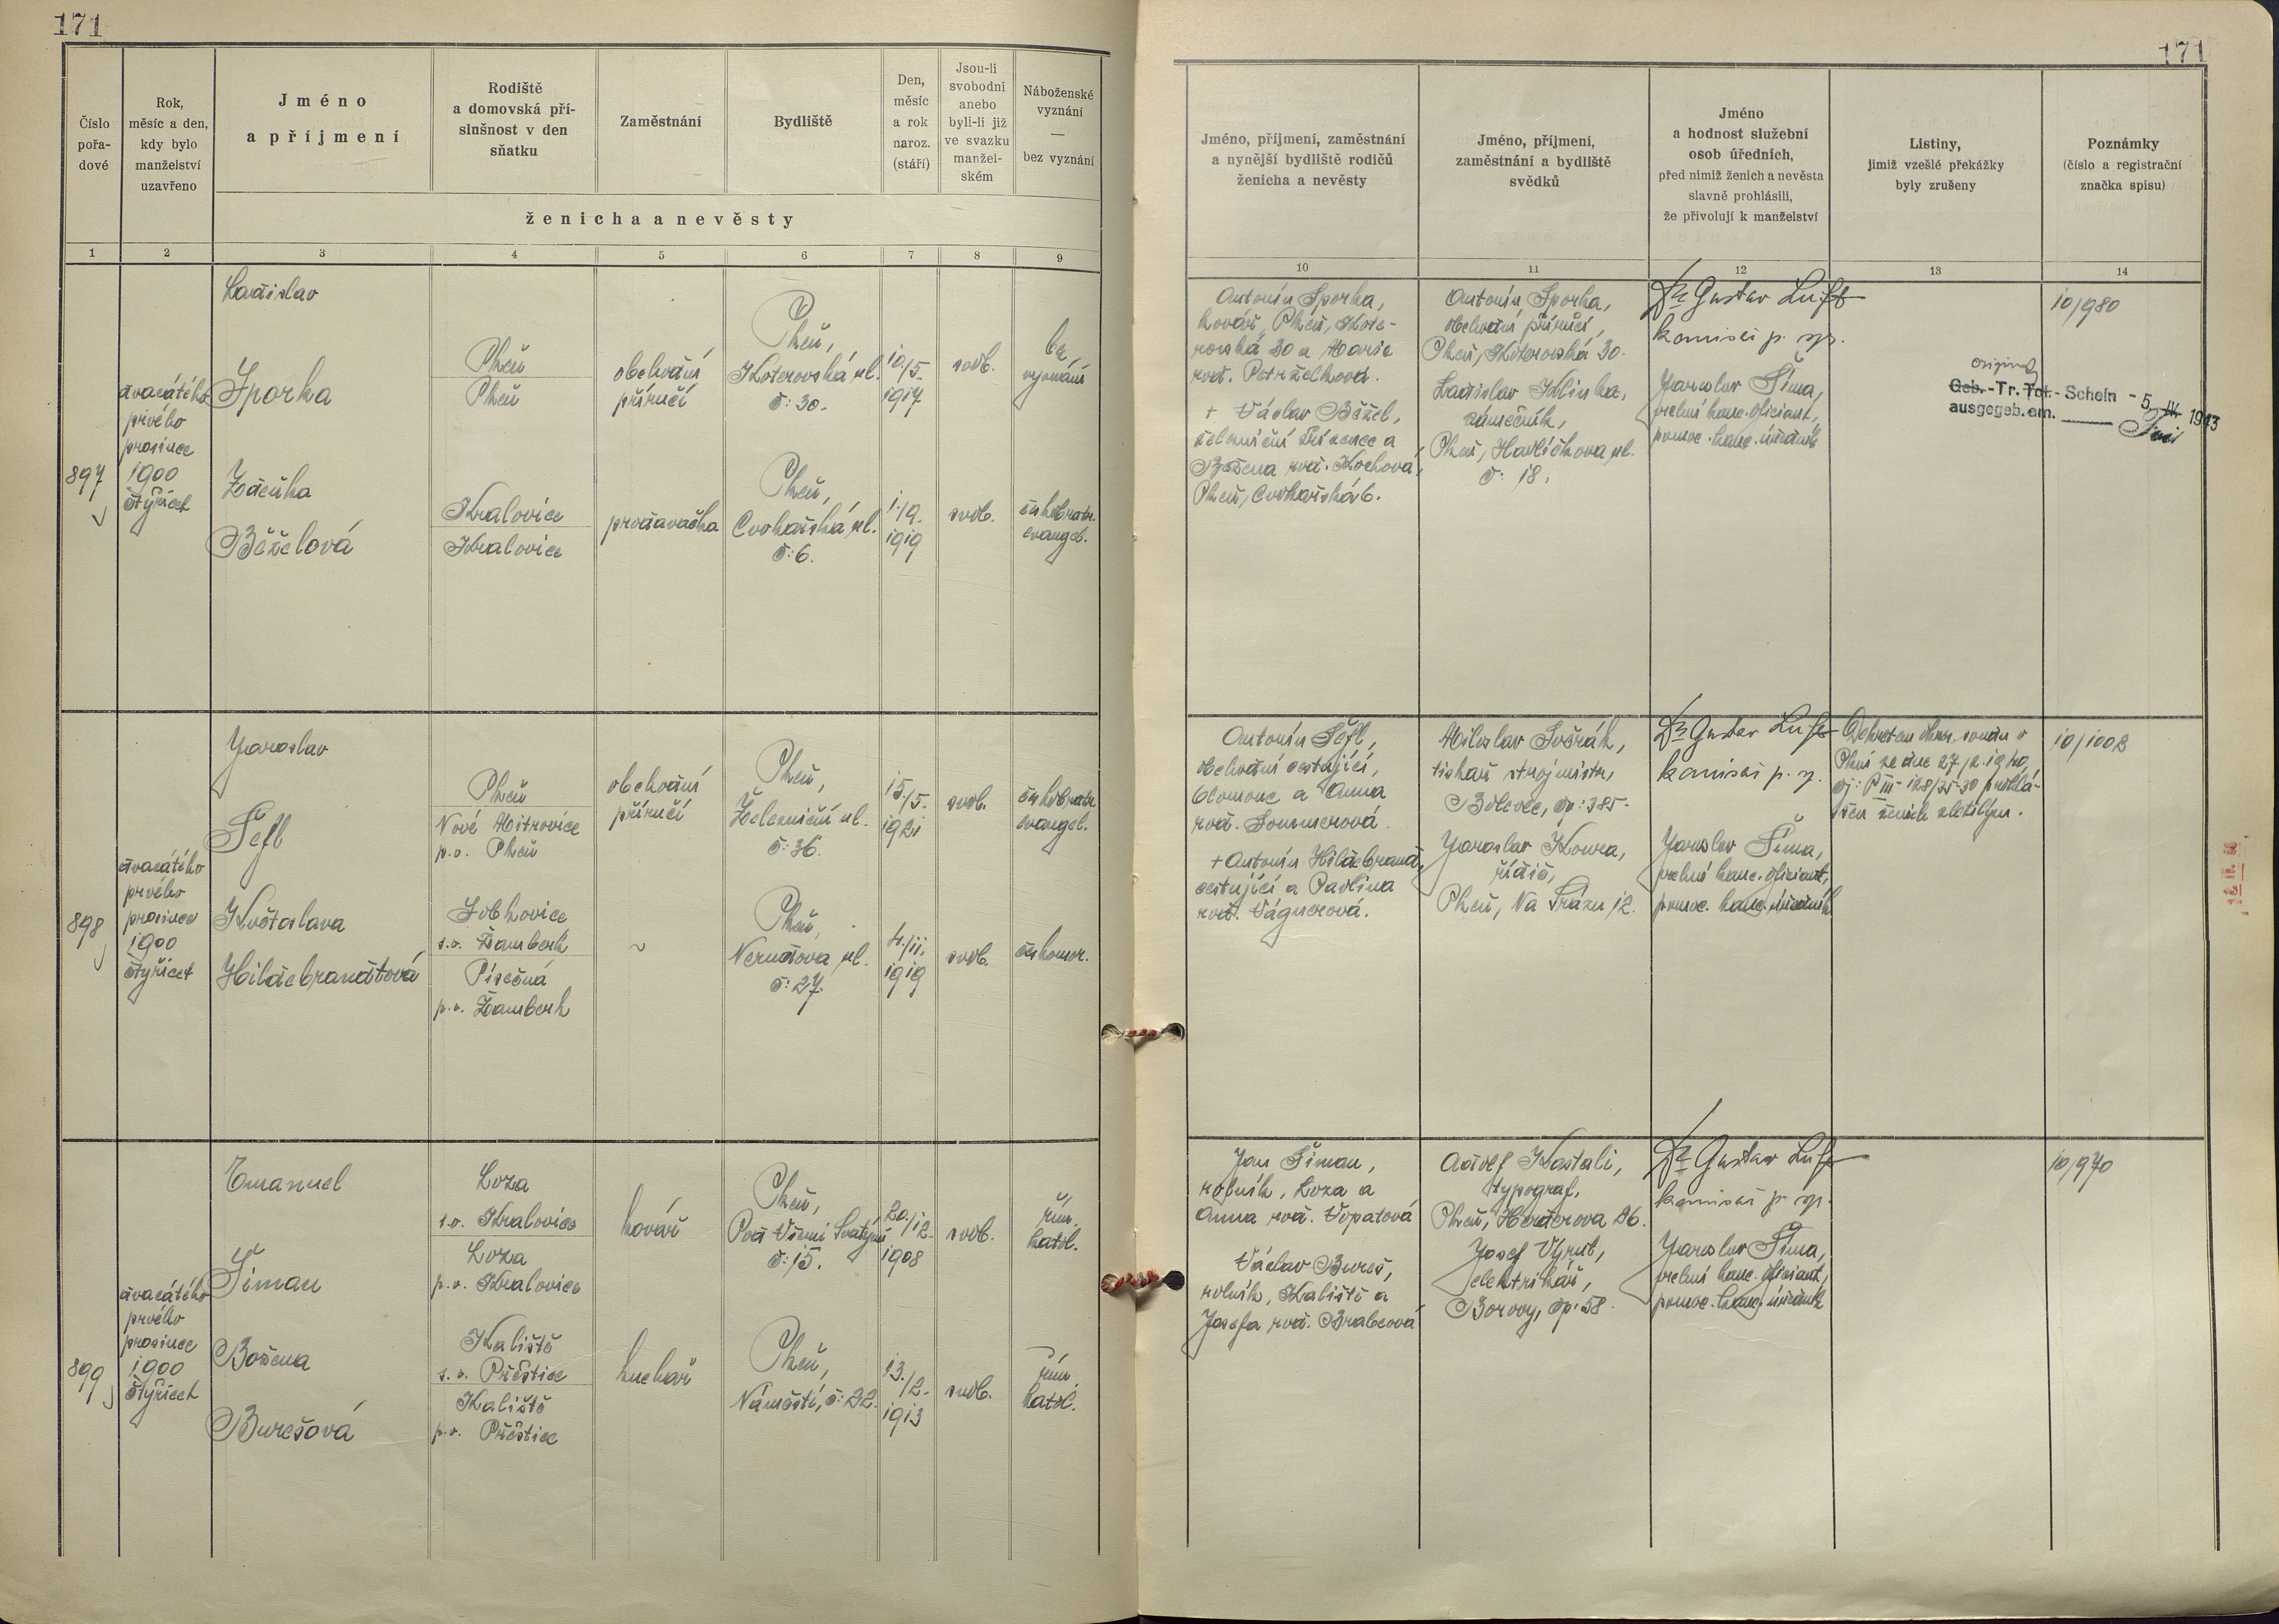 171
171
Číslo
pořa-
dové
Rok,
měsíc a den,
kdy bylo
manželství
uzavřeno
Jméno
a příjmení
Rodiště
a domovská pří-
slušnost v den
sňatku
Zaměstnání
Bydliště
Den,
měsíc
a rok
naroz.
(stáří)
Jsou-li
svobodni
anebo
byli-li již
ve svazku
manžel-
ském
Náboženské
vyznání
—
bez vyznání
ženicha a nevěsty
1 2 3 4 5 6 7 8 9
Jméno, příjmení, zaměstnání
a nynější bydliště rodičů
ženicha a nevěsty
Jméno, příjmení,
zaměstnání a bydliště
svědků
Jméno
a hodnost služební
osob úředních,
před nimiž ženich a nevěsta
slavně prohlásili,
že přivolují k manželství
Listiny,
jimiž vzešlé překážky
byly zrušeny
Poznámky
(číslo a registrační
značka spisu)
10 11 12 13 14
897
dvacátého
prvého
prosince
1900
čtyřicet
Ladislav
Šporka
Plzeň
Plzeň
obchodní
příručí
Plzeň,
Koterovská ul.
č: 30.
10./5.
1917
svob.
bez
vyznání
Zdeňka
Běželová
Kralovice
Kralovice
prodavačka
Plzeň,
Cvokařská ul.
č: 6.
1./9.
1919
svob.
čskobratr.
evangel.
Antonín Šporka,
kovář, Plzeň, Kote-
rovská 30 a Marie
rod. Petrželková.
+ Václav Běžel,
železniční zřízenec a
Božena rod. Kochová,
Plzeň, Cvokařská 6.
Antonín Šporka,
obchodní příručí,
Plzeň, Koterovská 30.
Ladislav Klinka,
zámečník,
Plzeň, Havlíčkova ul.
č: 18.
Dr Gustav Luft
komisař p. sp.
Jaroslav Šíma,
vrchní kanc. oficiant,
pomoc. kanc. úředník
10/980
original
Geb.-Tr. Tot.-Schein - 5. IV. 1943
ausgegeb. am.
898
dvacátého
prvého
prosince
1900
čtyřicet
Jaroslav
Šefl
Plzeň
Nové Mitrovice
p.o. Plzeň
obchodní
příručí
Plzeň,
Železniční ul.
č: 36.
15./5.
1921
svob.
čskobratr.
evangel.
Květoslava
Hildebrandtová
Sobkovice
s.o. Žamberk
Písečná
p.o. Žamberk
~
Plzeň,
Nerudova ul.
č: 27.
4./11.
1919
svob.
čskomor.
Antonín Šefl,
obchodní cestující,
Olomouc a Anna
rod. Sommerová.
+ Antonín Hildebrandt,
cestující a Pavlína
rod. Vágnerová.
Miloslav Svěrák,
tiskař strojmistr,
Bolevec, čp: 385.
Jaroslav Koura,
řidič,
Plzeň, Na Srázu 12.
Dr Gustav Luft
komisař p. sp.
Jaroslav Šíma,
vrchní kanc. oficiant,
pomoc. kanc. úředník
Dekretem okres. soudu v
Plzni ze dne 27./2. 1940,
čj: P III - 128/35-30 prohlá-
šen ženich zletilým.
10/1002
899
dvacátého
prvého
prosince
1900
čtyřicet
Emanuel
Šiman
Loza
s.o. Kralovice
Loza
p.o. Kralovice
kovář
Plzeň,
Pod Všemi Svatými
č: 15.
20./12.
1908
svob.
řím.
katol.
Božena
Burešová
Kaliště
s.o. Přeštice
Kaliště
p.o. Přeštice
kuchař
Plzeň,
Náměstí, č: 22.
13./2.
1913
svob.
řím.
katol.
Jan Šiman,
rolník, Loza a
Anna rod. Vopatová
Václav Bureš,
rolník, Kaliště a
Josefa rod. Brabcová
Adolf Kastali,
typograf,
Plzeň, Herderova 26.
Josef Výrut,
elektrikář,
Borovy, čp: 58.
Dr Gustav Luft
komisař p. sp.
Jaroslav Šíma,
vrchní kanc. oficiant,
pomoc. kanc. úředník
10/970